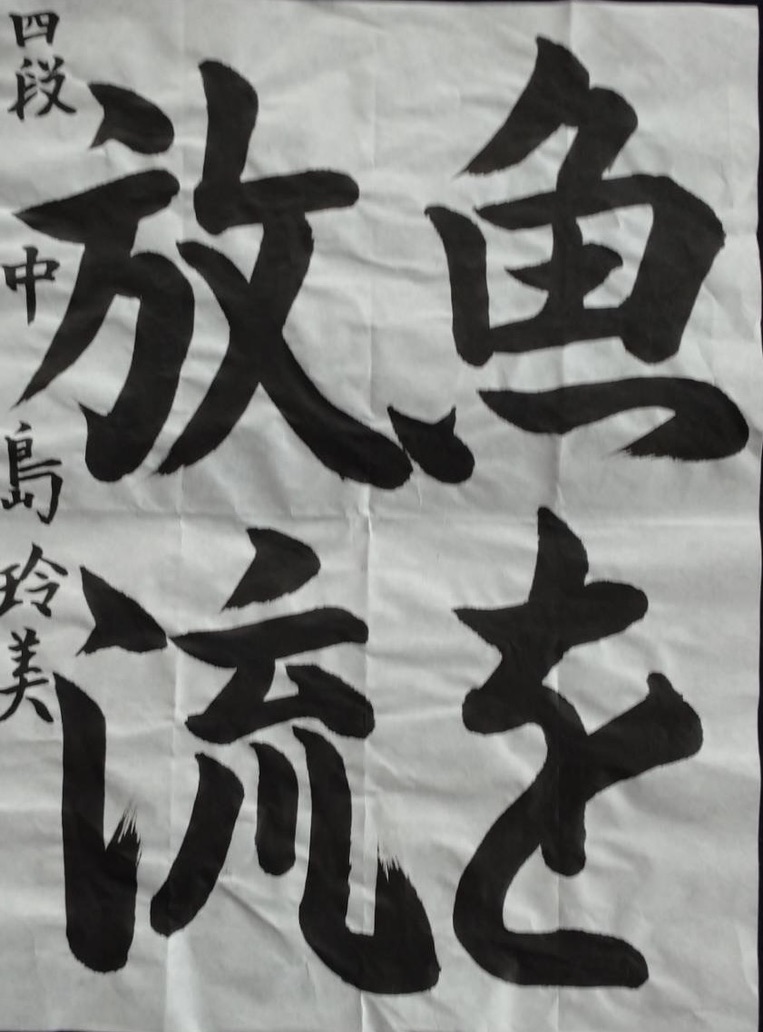 魚を
放流
四段 中島玲美